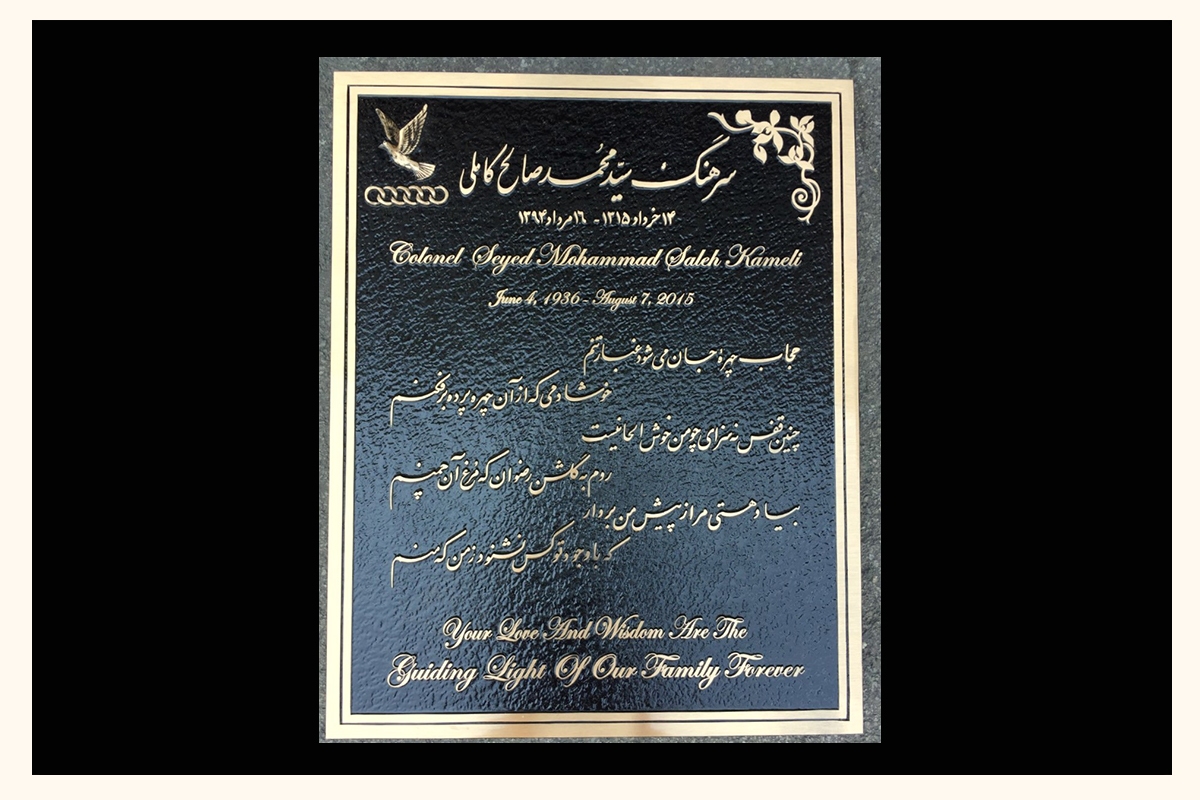 سرهنگ سیّد محُمد صالح کاملی
۱۴ خرداد ۱۳۱۵ - ۱۶ مرداد ۱۳۹۴
Colonel Seyed Mohammad Saleh Kameli
June 4, 1936 - August 7, 2015
حجاب چهرهٔ جان می شود غبار تنم
خوشا دمی که از آن چهره پرده برفکنم
چنین قفس نه سزای چو من خوش الحانیست
روم به گلشن رضوان که مرغ آن چمنم
بیا و هستی مرا از پیش من بردار
که با وجود تو کس نشنود ز من که منم
Your Love And Wisdom Are The
Guiding Light Of Our Family Forever